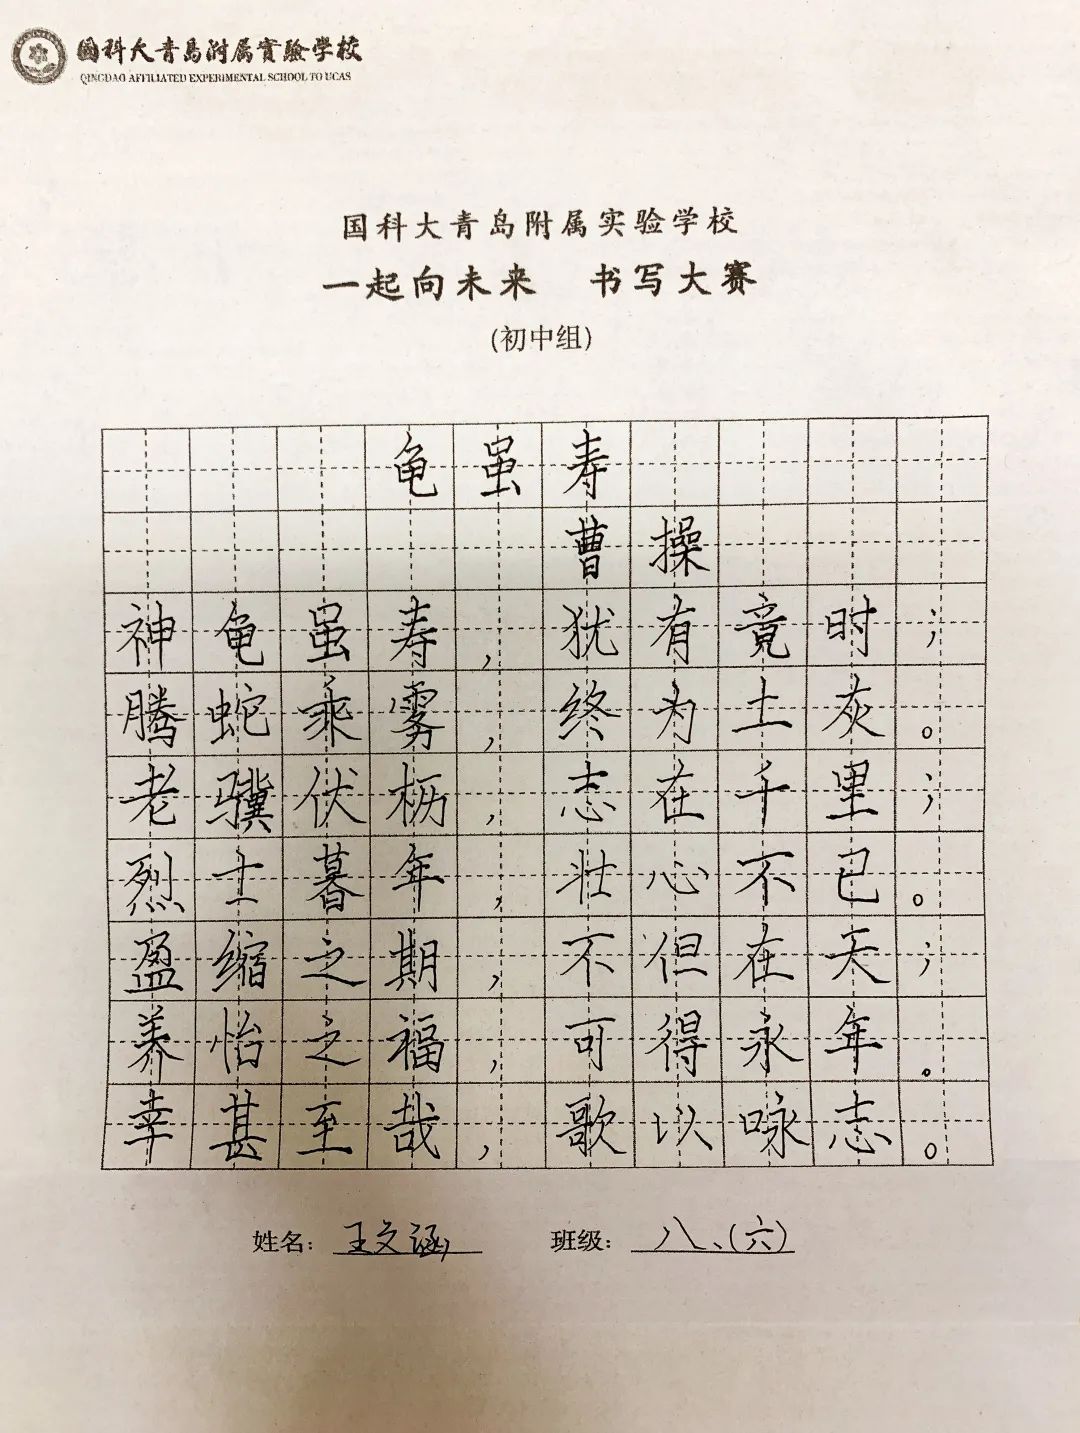 国科大青岛附属實驗学校
QINGDAO AFFILIATED EXPERIMENTAL SCHOOL TO UCAS
国科大青岛附属实验学校
一起向未来 书写大赛
(初中组)
龟虽寿
曹操
神龟虽寿,犹有竟时;
腾蛇乘雾,终为土灰。
老骥伏枥,志在千里;
烈士暮年,壮心不已。
盈缩之期,不但在天;
养怡之福,可得永年。
幸甚至哉,歌以咏志。
姓名: 王文涵 班级: 八、(六)